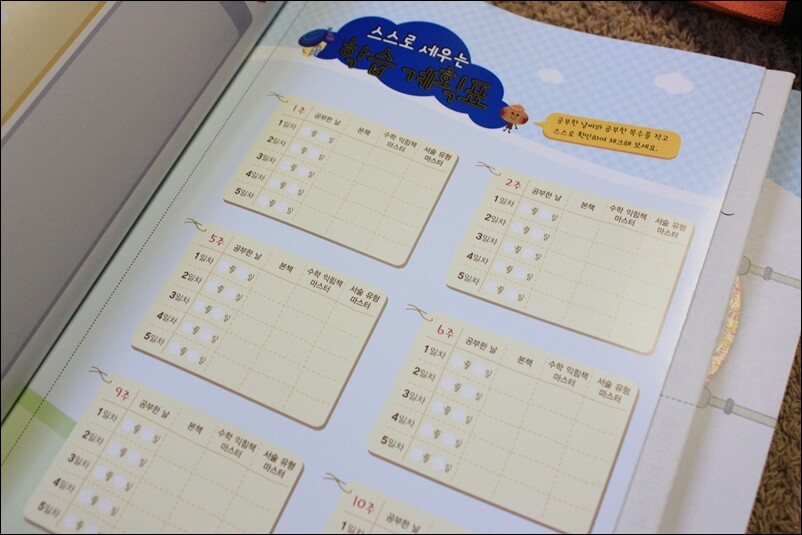 스스로 세우는
학습 계획표
공부한 날짜와 공부한 쪽수를 적고
스스로 확인하여 체크해 보세요.
1주 공부한 날 본책 수학 익힘책 마스터 서술 유형 마스터
1일차 월 일
2일차 월 일
3일차 월 일
4일차 월 일
5일차 월 일
2주 공부한 날 본책 수학 익힘책 마스터 서술 유형 마스터
1일차 월 일
2일차 월 일
3일차 월 일
4일차 월 일
5일차 월 일
5주 공부한 날 본책 수학 익힘책 마스터 서술 유형 마스터
1일차 월 일
2일차 월 일
3일차 월 일
4일차 월 일
5일차 월 일
6주 공부한 날 본책 수학 익힘책 마스터 서술 유형 마스터
1일차 월 일
2일차 월 일
3일차 월 일
4일차 월 일
5일차 월 일
9주 공부한 날 본책 수학 익힘책 마스터 서술 유형 마스터
1일차 월 일
2일차 월 일
3일차 월 일
4일차 월 일
5일차 월 일
10주 공부한 날 본책 수학 익힘책 마스터 서술 유형
1일차 월